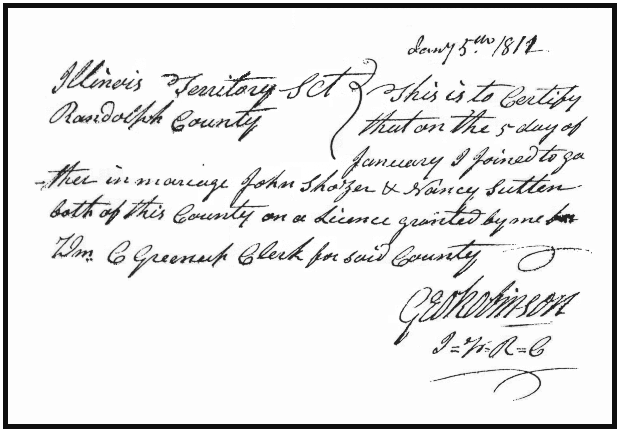 Jany 5th 1812
Illinois Territory Sct
Randolph County
This is to Certify
that on the 5 day of
January I Joined to ga
ther in mariage John Shazer & Nancy Sutten
both of this County on a Licence granted by me
Wm C Greenup Clerk for said County
Geo Robinson
J=P=R=C